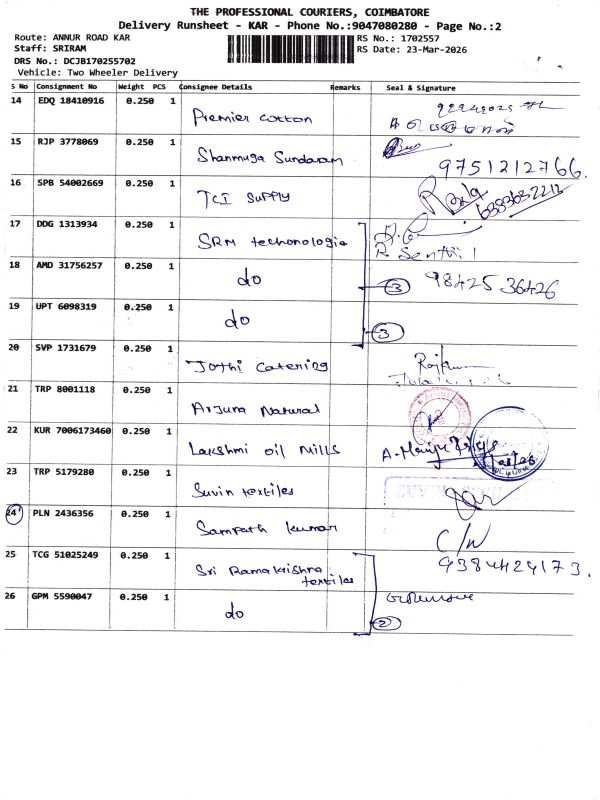 THE PROFESSIONAL COURIERS, COIMBATORE
Delivery Runsheet - KAR - Phone No.:9047080280 - Page No.:2
Route: ANNUR ROAD KAR
RS No.: 1702557
Staff: SRIRAM
RS Date: 23-Mar-2026
DRS No.: DCJB170255702
Vehicle: Two Wheeler Delivery
S No Consignment No Weight PCS Consignee Details Remarks Seal & Signature
14 EDQ 18410916 0.250 1 Premier cotton
15 RJP 3778069 0.250 1 Shanmuga Sundaram 9751212766.
16 SPB 54002669 0.250 1 TCI Supply
17 DDG 1313934 0.250 1 SRM techonologie R. Senthil
18 AMD 31756257 0.250 1 do 3 98425 36426
19 UPT 6098319 0.250 1 do 3
20 SVP 1731679 0.250 1 Jothi Catering Rajkum
21 TRP 8001118 0.250 1 Arjuna Natural
22 KUR 7006173460 0.250 1 Lakshmi oil Mills
23 TRP 5179280 0.250 1 Suvin textiles
24 PLN 2436356 0.250 1 Sampath kumar C/W
25 TCG 51025249 0.250 1 Sri Ramakrishna textiles 9384424173.
26 GPM 5590047 0.250 1 do 2